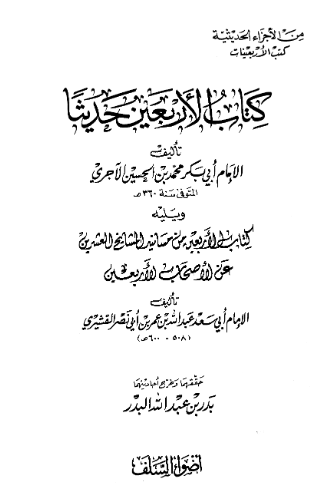 من الأجزاء الحديثية
كتب الأربعينات
كتاب الأربعين حديثا
تأليف
الإمام أبي بكر محمد بن الحسين الآجري
المتوفى سنة ٣٦٠ هـ
ويليه
كتاب الأربعين من مسانيد المشايخ العشرين
عن الأصحاب الأربعين
تأليف
الإمام أبي سعد عبد الله بن عمر بن أبي نصر القشيري
(٥٠٨ - ٦٠٠ هـ)
حققهما وخرج أحاديثهما
بدر بن عبد الله البدر
أضواء السلف